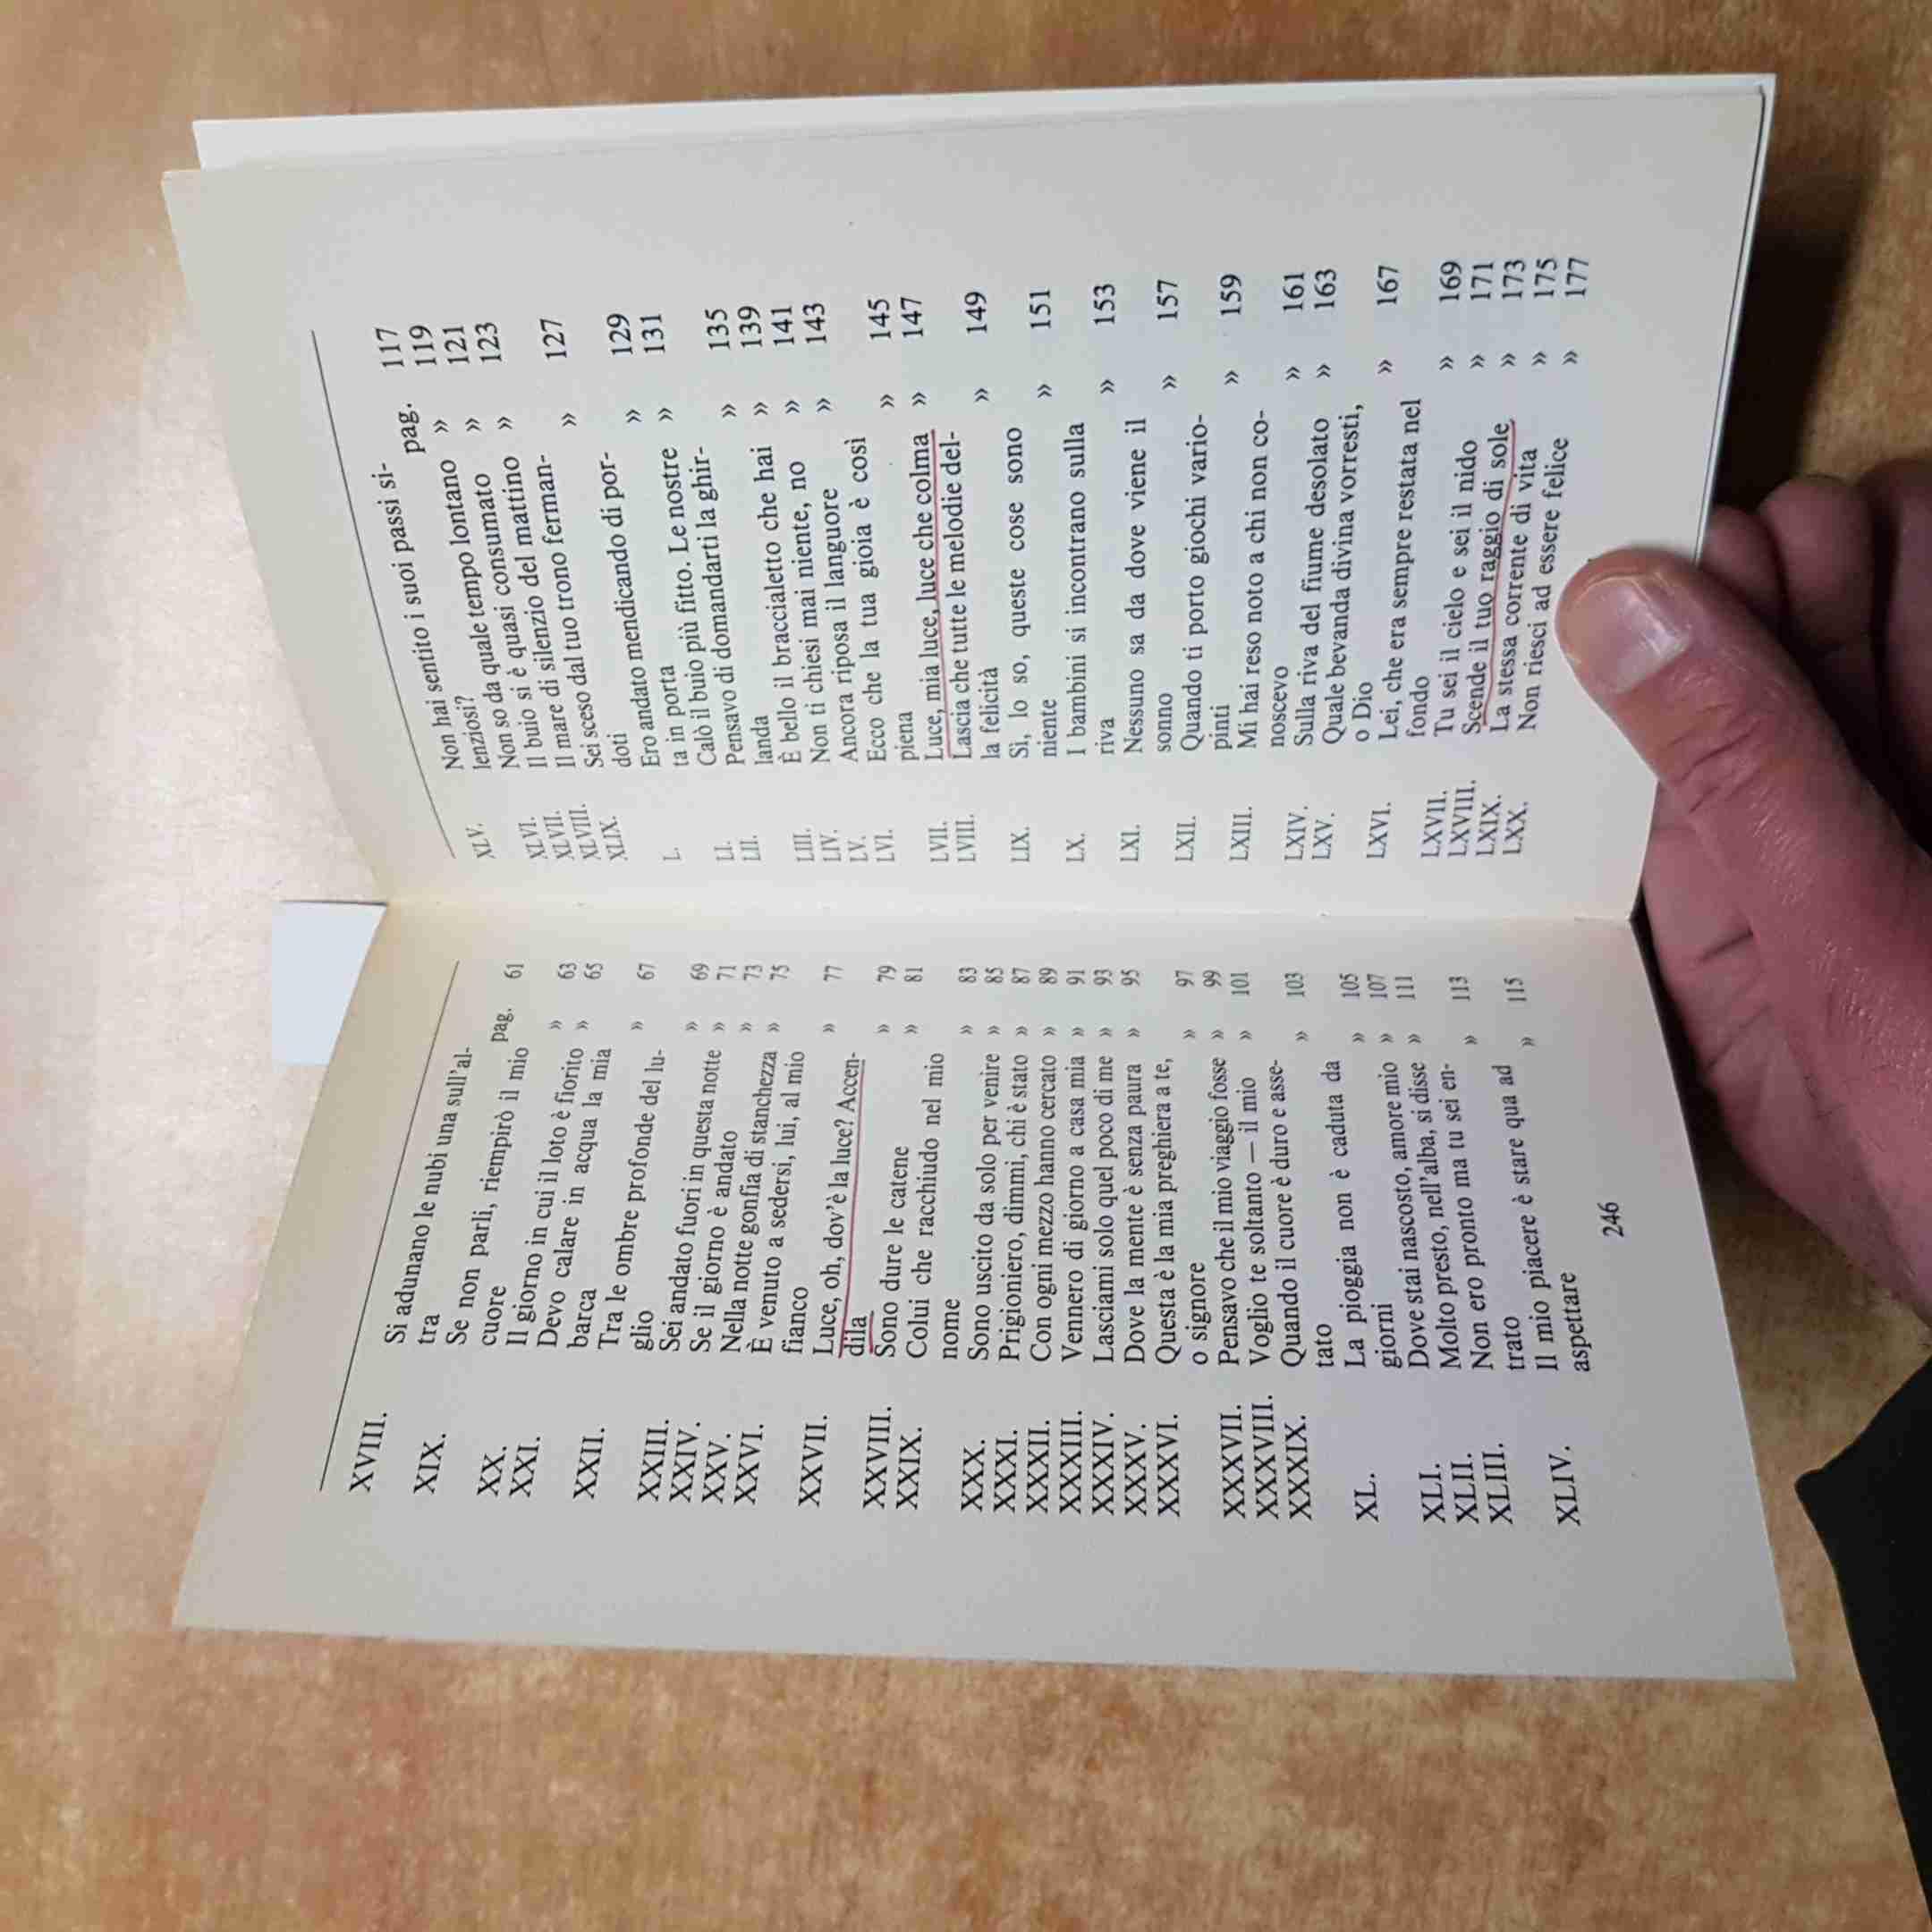 XVIII. Si adunano le nubi una sull'al-
tra pag. 61
XIX. Se non parli, riempirò il mio
cuore » 63
XX. Il giorno in cui il loto è fiorito » 65
XXI. Devo calare in acqua la mia
barca » 67
XXII. Tra le ombre profonde del lu-
glio » 69
XXIII. Sei andato fuori in questa notte » 71
XXIV. Se il giorno è andato » 73
XXV. Nella notte gonfia di stanchezza » 75
XXVI. È venuto a sedersi, lui, al mio
fianco » 77
XXVII. Luce, oh, dov'è la luce? Accen-
dila » 79
XXVIII. Sono dure le catene » 81
XXIX. Colui che racchiudo nel mio
nome » 83
XXX. Sono uscito da solo per venire » 85
XXXI. Prigioniero, dimmi, chi è stato » 87
XXXII. Con ogni mezzo hanno cercato » 89
XXXIII. Vennero di giorno a casa mia » 91
XXXIV. Lasciami solo quel poco di me » 93
XXXV. Dove la mente è senza paura » 95
XXXVI. Questa è la mia preghiera a te,
o signore » 97
XXXVII. Pensavo che il mio viaggio fosse » 99
XXXVIII. Voglio te soltanto — il mio » 101
XXXIX. Quando il cuore è duro e asse-
tato » 103
XL. La pioggia non è caduta da
giorni » 105
XLI. Dove stai nascosto, amore mio » 107
XLII. Molto presto, nell'alba, si disse » 111
XLIII. Non ero pronto ma tu sei en-
trato » 113
XLIV. Il mio piacere è stare qua ad
aspettare » 115
246
XLV. Non hai sentito i suoi passi si-
lenziosi? pag. 117
XLVI. Non so da quale tempo lontano » 119
XLVII. Il buio si è quasi consumato » 121
XLVIII. Il mare di silenzio del mattino » 123
XLIX. Sei sceso dal tuo trono ferman-
doti » 127
L. Ero andato mendicando di por-
ta in porta » 129
LI. Calò il buio più fitto. Le nostre » 131
LII. Pensavo di domandarti la ghir-
landa » 135
LIII. È bello il braccialetto che hai » 139
LIV. Non ti chiesi mai niente, no » 141
LV. Ancora riposa il languore » 143
LVI. Ecco che la tua gioia è così
piena » 145
LVII. Luce, mia luce, luce che colma » 147
LVIII. Lascia che tutte le melodie del-
la felicità » 149
LIX. Sì, lo so, queste cose sono
niente » 151
LX. I bambini si incontrano sulla
riva » 153
LXI. Nessuno sa da dove viene il
sonno » 157
LXII. Quando ti porto giochi vario-
pinti » 159
LXIII. Mi hai reso noto a chi non co-
noscevo » 161
LXIV. Sulla riva del fiume desolato » 163
LXV. Quale bevanda divina vorresti,
o Dio » 167
LXVI. Lei, che era sempre restata nel
fondo » 169
LXVII. Tu sei il cielo e sei il nido » 171
LXVIII. Scende il tuo raggio di sole » 173
LXIX. La stessa corrente di vita » 175
LXX. Non riesci ad essere felice » 177